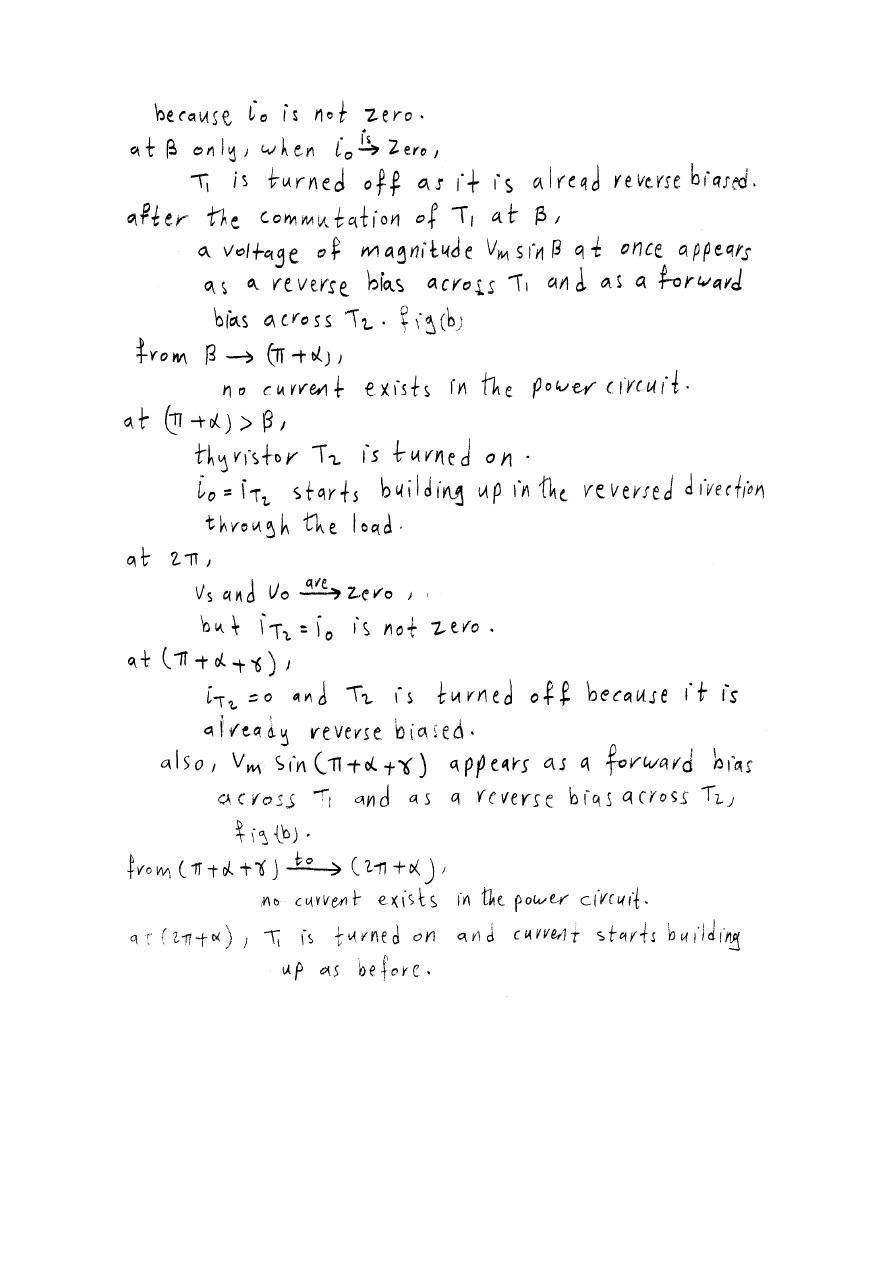 because io is not zero.
at β only, when io is→ zero,
T1 is turned off as it is alread reverse biased.
after the commutation of T1 at β,
a voltage of magnitude Vm sin β at once appears
as a reverse bias across T1 and as a forward
bias across T2. fig(b)
from β → (π+α),
no current exists in the power circuit.
at (π+α) > β,
thyristor T2 is turned on.
io = iT2 starts building up in the reversed direction
through the load.
at 2π,
Vs and Vo are→ zero,
but iT2 = io is not zero.
at (π+α+γ),
iT2 = 0 and T2 is turned off because it is
already reverse biased.
also, Vm Sin(π+α+γ) appears as a forward bias
across T1 and as a reverse bias across T2,
fig(b).
from (π+α+γ) to→ (2π+α),
no current exists in the power circuit.
at (2π+α), T1 is turned on and current starts building
up as before.